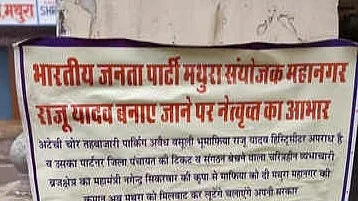 मथुरा
भारतीय जनता पार्टी मथुरा संयोजक महानगर
राजू यादव बनाए जाने पर नेत्वृत्व का आभार
अटेची चोर तहबाजारी पार्किंग अवैध वसूली भूमाफिया राजू यादव हिस्ट्रिसिटर अपराध है
व उसका पार्टनर जिला पंचायत की टिकट व संगठन बेचने वाला चरित्रहीन व्यभाचारी
ब्रजक्षेत्र का महामंत्री नगेन्द्र सिकरवार की कृपा से माफिया को दी मथुरा महानगर की
कमान अब मथुरा को मिलवाट कर लूटेंगे चलाएंगे अपनी सरकार